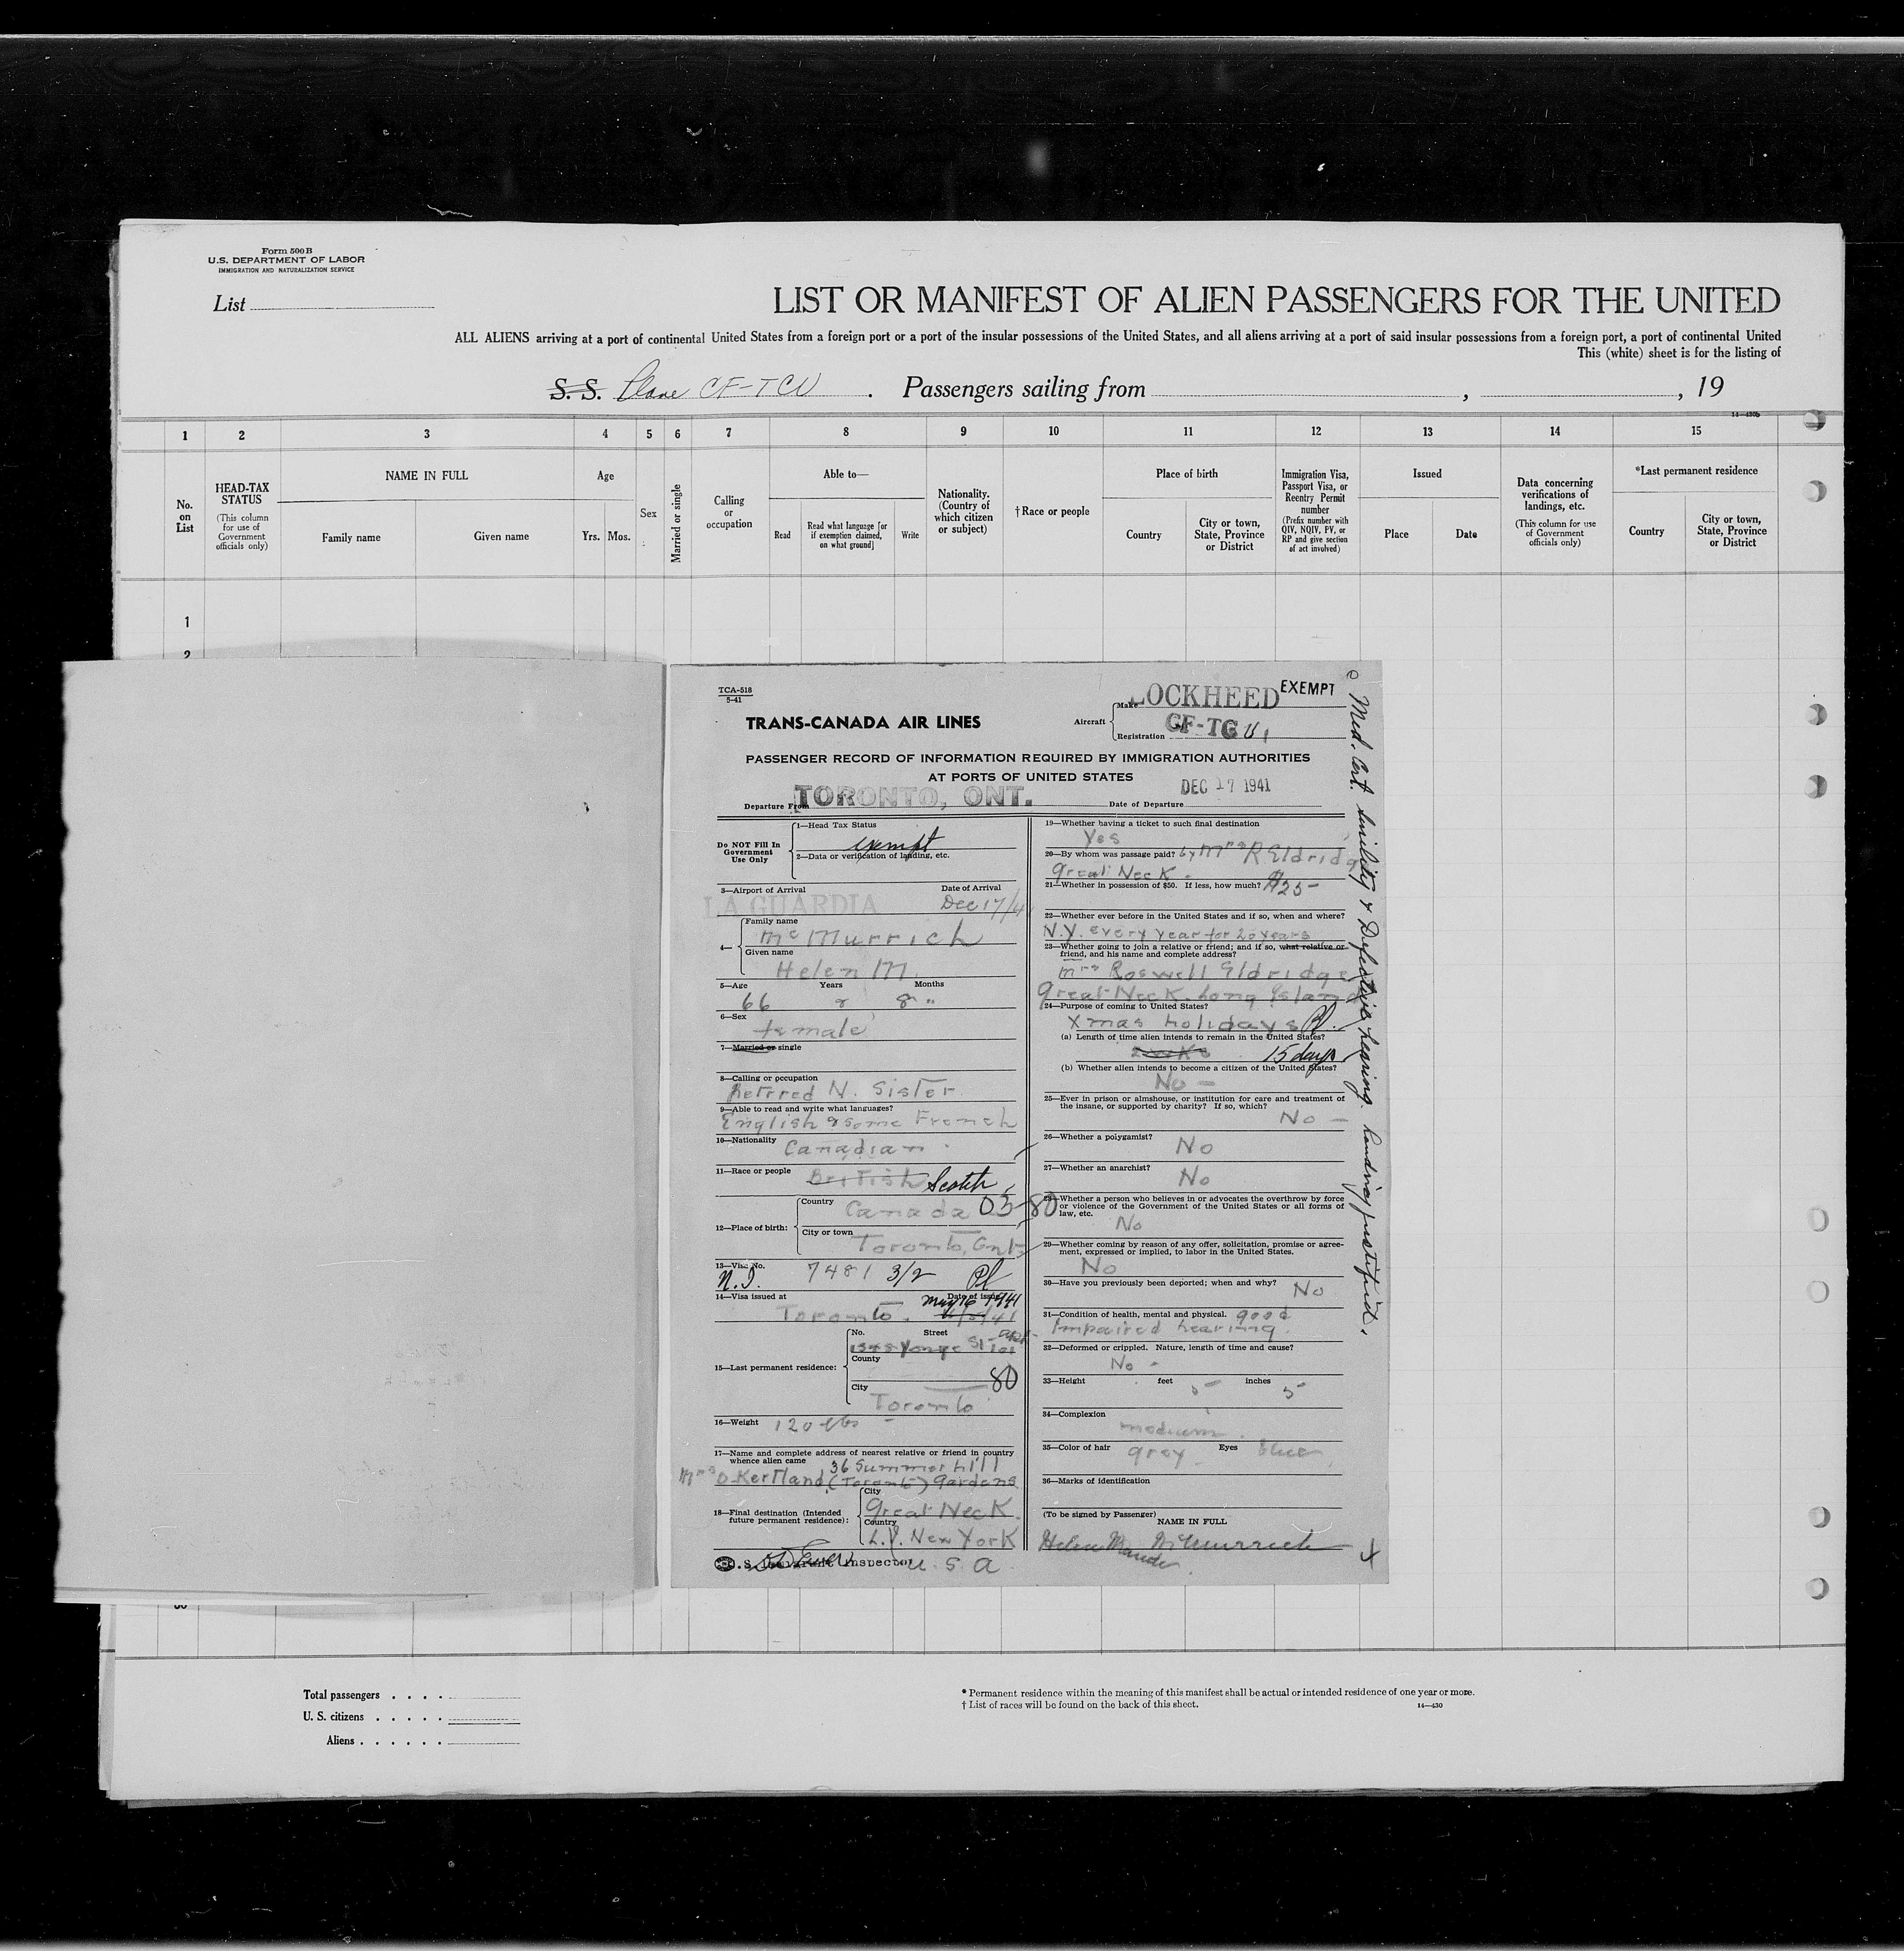 Form 500 B
U.S. DEPARTMENT OF LABOR
IMMIGRATION AND NATURALIZATION SERVICE
List
LIST OR MANIFEST OF ALIEN PASSENGERS FOR THE UNITED
ALL ALIENS arriving at a port of continental United States from a foreign port or a port of the insular possessions of the United States, and all aliens arriving at a port of said insular possessions from a foreign port, a port of continental United
This (white) sheet is for the listing of
S. S. Plane CF-TCU . Passengers sailing from , , 19
14—430b
1 2 3 4 5 6 7 8 9 10 11 12 13 14 15
No. on List
HEAD-TAX STATUS
(This column for use of Government officials only)
NAME IN FULL
Family name
Given name
Age
Yrs. Mos.
Sex
Married or single
Calling or occupation
Able to—
Read
Read what language [or if exemption claimed, on what ground]
Write
Nationality. (Country of which citizen or subject)
†Race or people
Place of birth
Country
City or town, State, Province or District
Immigration Visa, Passport Visa, or Reentry Permit number
(Prefix number with QIV, NQIV, PV, or RP and give section of act involved)
Issued
Place
Date
Data concerning verifications of landings, etc.
(This column for use of Government officials only)
*Last permanent residence
Country
City or town, State, Province or District
1
2
TCA-518
5-41
TRANS-CANADA AIR LINES
Aircraft
Make LOCKHEED
EXEMPT
Registration CF-TC U
PASSENGER RECORD OF INFORMATION REQUIRED BY IMMIGRATION AUTHORITIES
AT PORTS OF UNITED STATES
Departure From TORONTO, ONT.
Date of Departure DEC 17 1941
Do NOT Fill In Government Use Only
1—Head Tax Status
exempt
2—Data or verification of landing, etc.
3—Airport of Arrival Date of Arrival
LA GUARDIA Dec 17/4
4— Family name
McMurrich
Given name
Helen M.
5—Age Years Months
66 & 8 "
6—Sex
female
7—Married or single
8—Calling or occupation
Retired N. Sister
9—Able to read and write what languages?
English & some French
10—Nationality
Canadian
11—Race or people
British Scotch
12—Place of birth:
Country
Canada 03-80
City or town
Toronto, Ont
13—Visa No.
N.I. 7481 3/2 Pl
14—Visa issued at Date of issue
Toronto. May 16 1941
15—Last permanent residence:
No. Street
Yonge St
County
80
City
Toronto
16—Weight 120 lbs
17—Name and complete address of nearest relative or friend in country whence alien came
36 Summerhill
Mrs O Kertland (Toronto) Gardens
18—Final destination (Intended future permanent residence):
City
Great Neck.
Country
L.I. New York
U.S.A
U.S. Immigrant Inspector
19—Whether having a ticket to such final destination
Yes
20—By whom was passage paid? by Mrs R Eldridg
Great Neck.
21—Whether in possession of $50. If less, how much? $25-
22—Whether ever before in the United States and if so, when and where?
N.Y. every year for 20 years
23—Whether going to join a relative or friend; and if so, what relative or friend, and his name and complete address?
Mrs Roswell Eldridge
Great Neck. Long Island
24—Purpose of coming to United States?
Xmas holidays Pl.
(a) Length of time alien intends to remain in the United States?
15 days
(b) Whether alien intends to become a citizen of the United States?
No —
25—Ever in prison or almshouse, or institution for care and treatment of the insane, or supported by charity? If so, which?
No —
26—Whether a polygamist?
No
27—Whether an anarchist?
No
28—Whether a person who believes in or advocates the overthrow by force or violence of the Government of the United States or all forms of law, etc.
No
29—Whether coming by reason of any offer, solicitation, promise or agreement, expressed or implied, to labor in the United States.
No
30—Have you previously been deported; when and why?
No
31—Condition of health, mental and physical. good
Impaired hearing.
32—Deformed or crippled. Nature, length of time and cause?
No -
33—Height feet 5 inches 5
34—Complexion
medium.
35—Color of hair grey Eyes blue
36—Marks of identification
(To be signed by Passenger)
NAME IN FULL
Helen Maude McMurrich
Med. Cert. Senility & Defective hearing. Landing justified.
Total passengers . . . .
U. S. citizens . . . . .
Aliens . . . . . .
* Permanent residence within the meaning of this manifest shall be actual or intended residence of one year or more.
† List of races will be found on the back of this sheet.
14—430